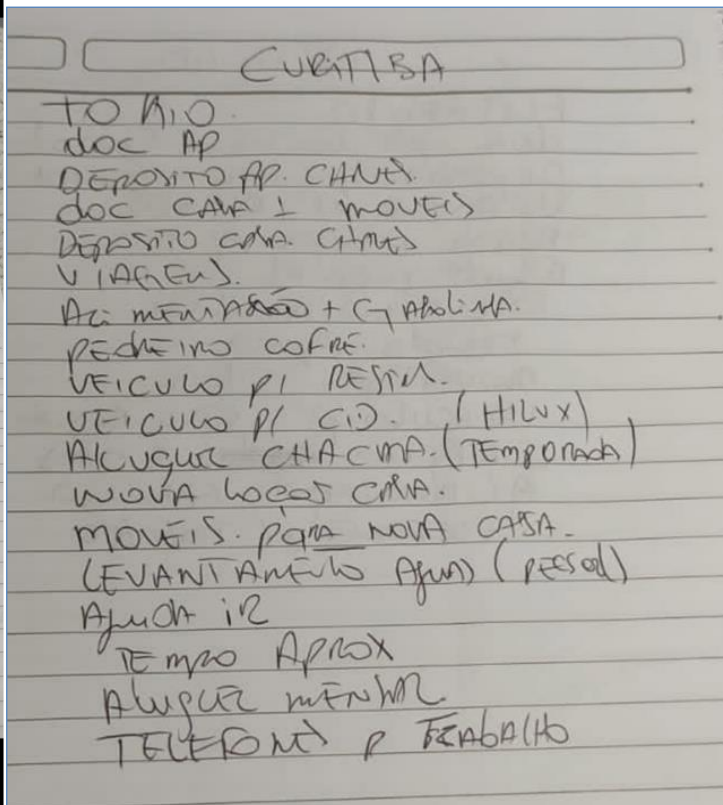 CURITIBA
TO RIO.
doc AP
DEPOSITO AP. CHAVES.
doc CASA + MOVEIS
DEPOSITO CASA. CHAVES
VIAGENS.
ALIMENTAÇÃO + GASOLINA.
PEDREIRO COFRE.
VEICULO P/
VEICULO P/ CID. (HILUX)
ALUGUEL CHACARA. (TEMPORADA)
NOVA CASA.
MOVEIS. PARA NOVA CASA.
LEVANTAMENTO (PESSOAL)
AJUDA
TEMPO APROX
ALUGUEL MENSAL
TELEFONES P TRABALHO